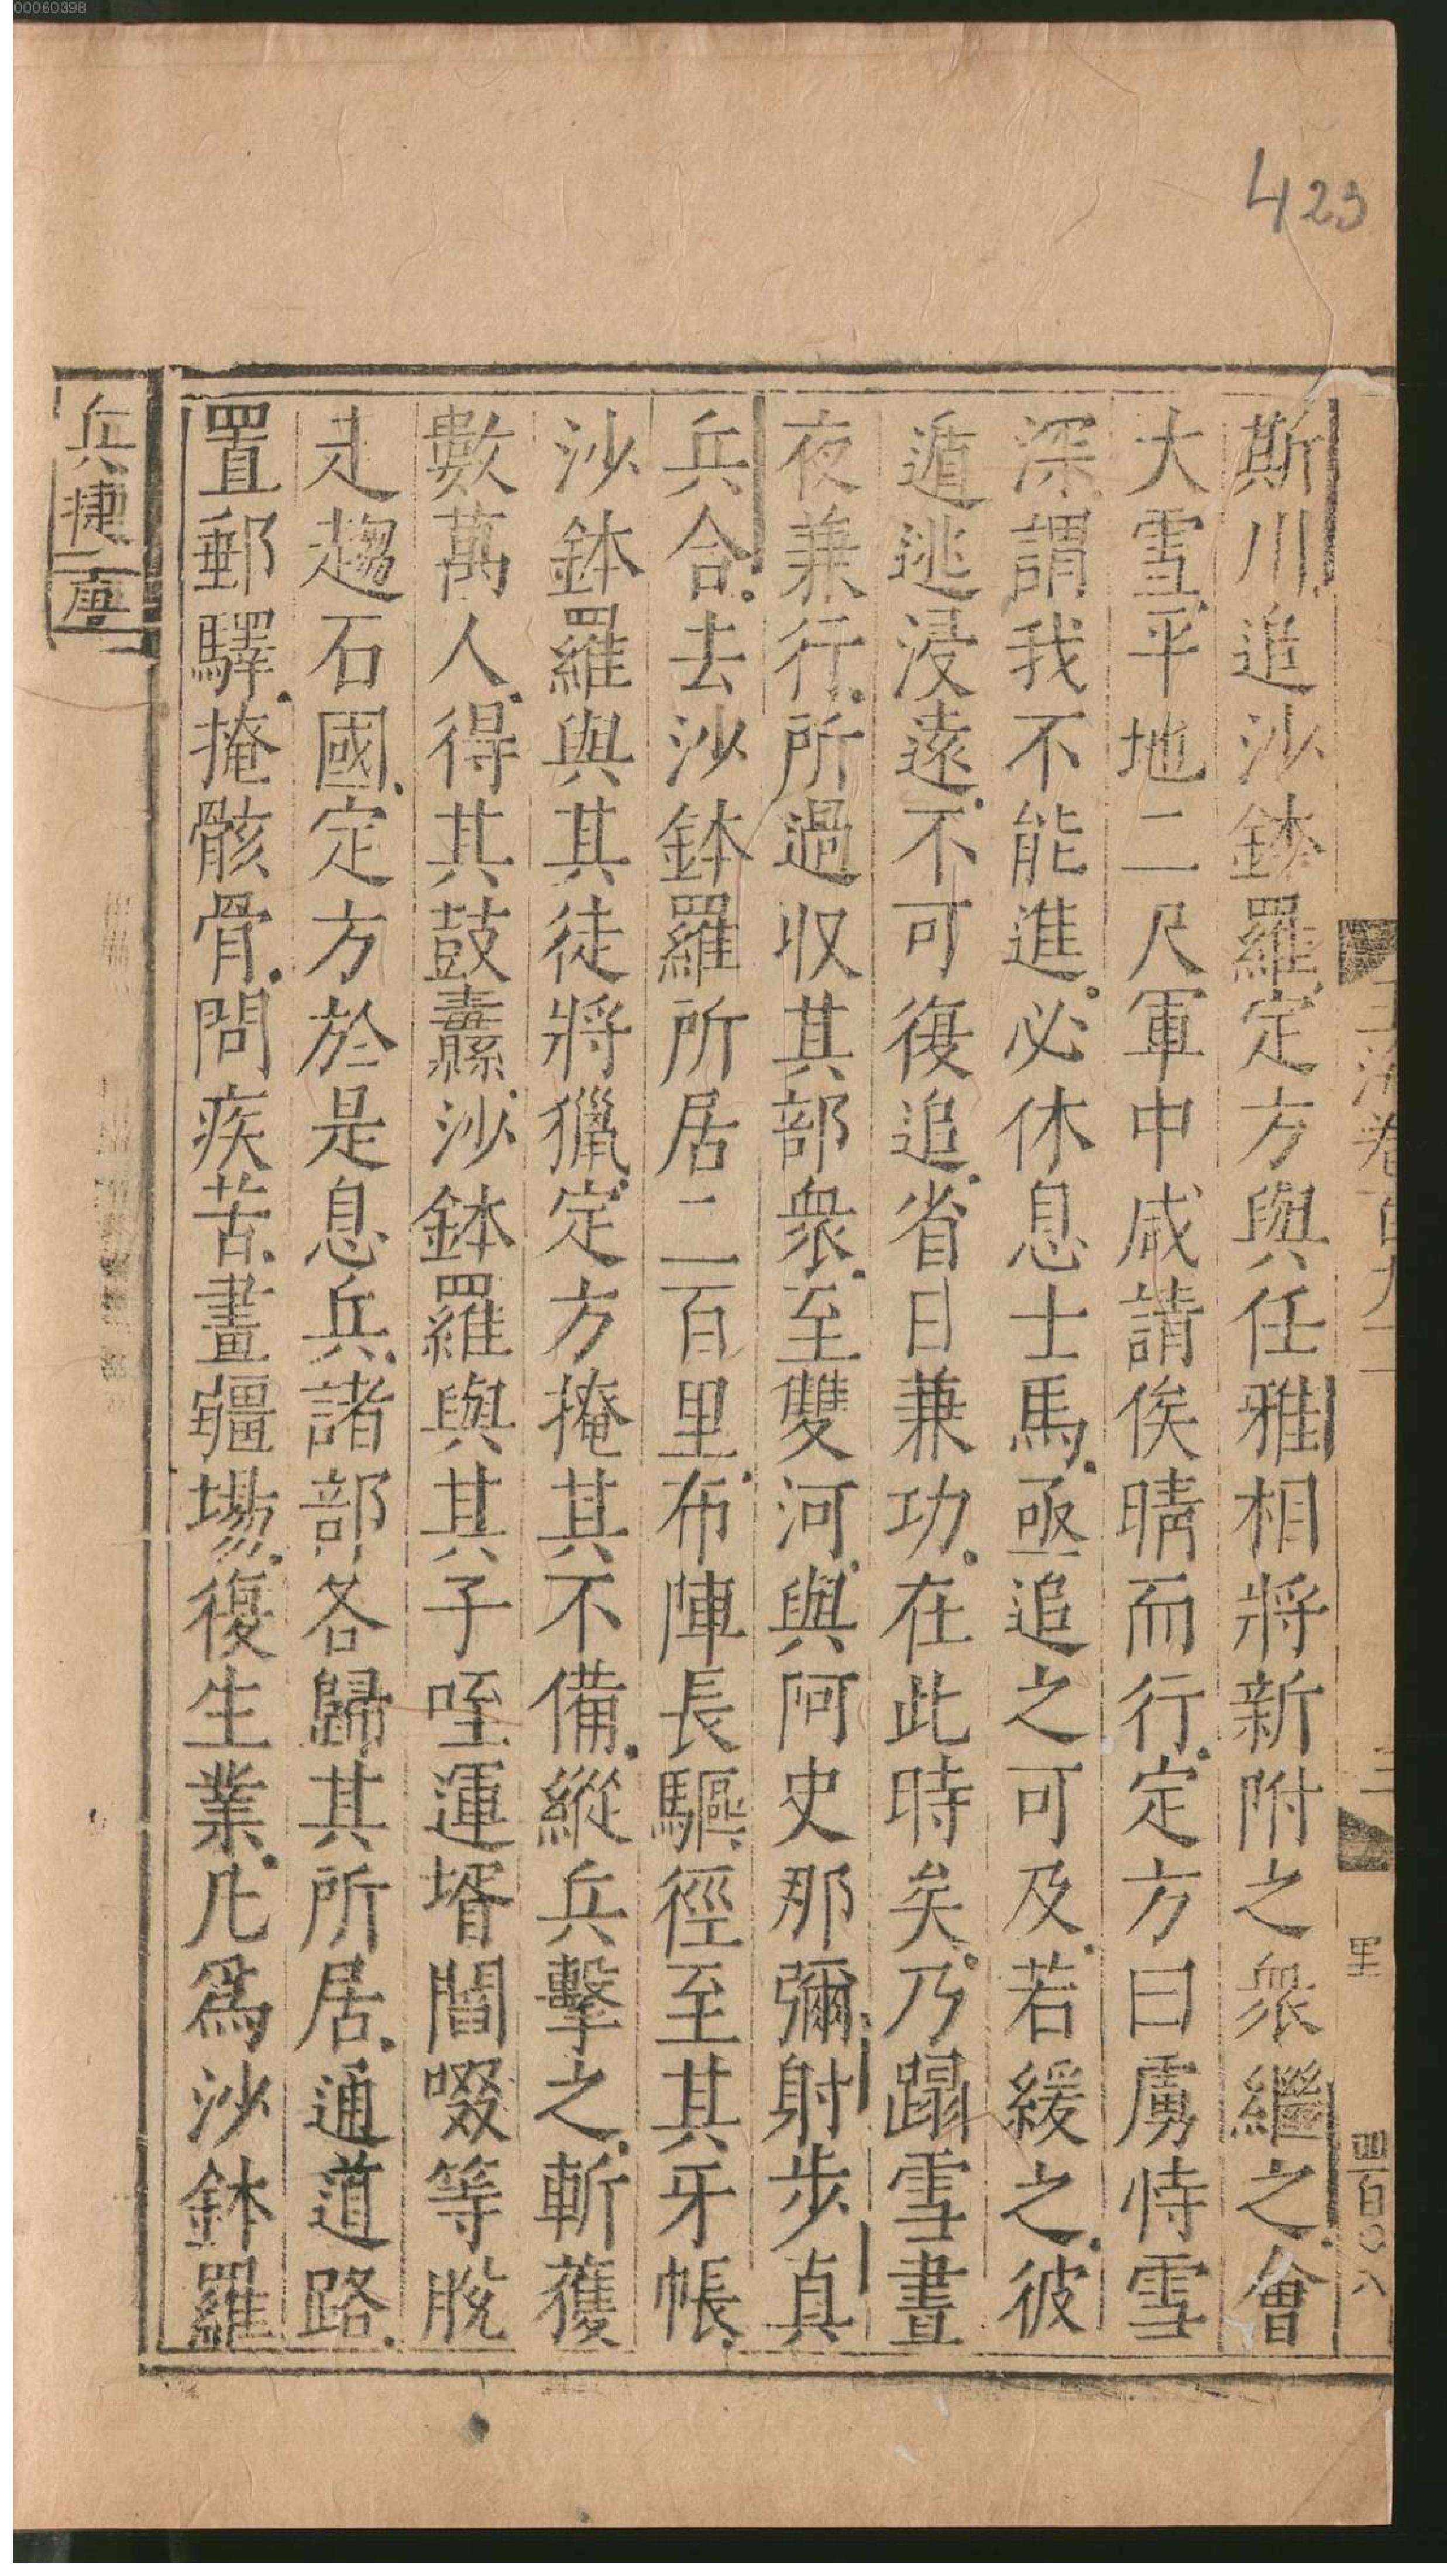 00060398
423
斯川追沙鉢羅定方與任雅相將新附之衆繼之會
大雪平地二尺軍中咸請俟晴而行定方曰虜恃雪
深謂我不能進必休息士馬亟追之可及若緩之彼
遁逃浸遠不可復追省日兼功在此時矣乃蹋雪晝
夜兼行所過收其部衆至雙河與阿史那彌射步真
兵合去沙鉢羅所居二百里布陣長驅徑至其牙帳
沙鉢羅與其徒將獵定方掩其不備縱兵擊之斬獲
數萬人得其鼓纛沙鉢羅與其子咥運壻閻啜等脫
走趨石國定方於是息兵諸部各歸其所居通道路
置郵驛掩骸骨問疾苦畫疆場復生業凡爲沙鉢羅
兵捷 唐
里
四百〇八